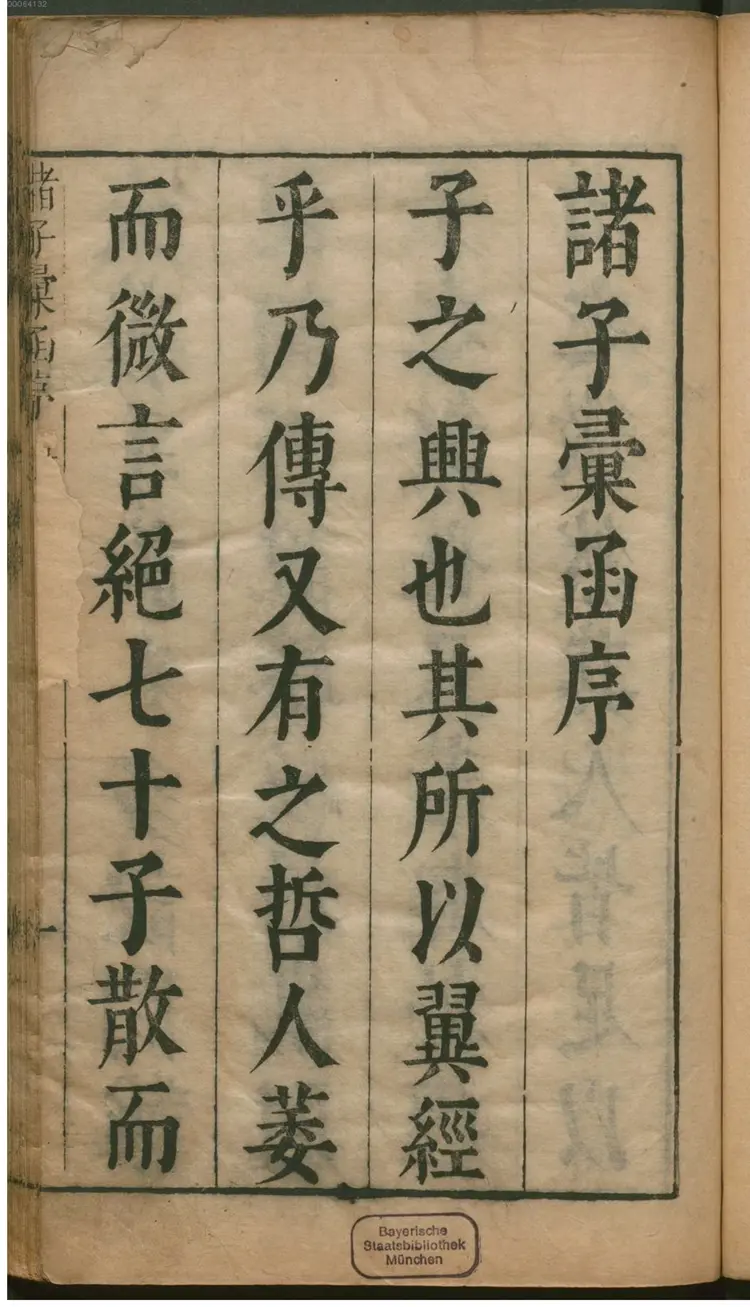 00064132
諸子彙函序
子之興也其所以翼經
乎乃傳又有之哲人萎
而微言絕七十子散而
諸子彙函序
一
Bayerische
Staatsbibliothek
München